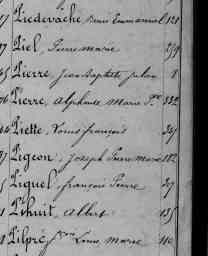 Piedevache, Emmanuel 121
Piel, Pierre marie
Pierre, Jean Baptiste Julien 8
Pierre, Alphonse Marie 332
Piette, Louis françois
Pigeon, Joseph Pierre Marie 182
Piguel, françois Pierre 27
Pihuit, Albert 135
Pilpré, Louis Marie 110